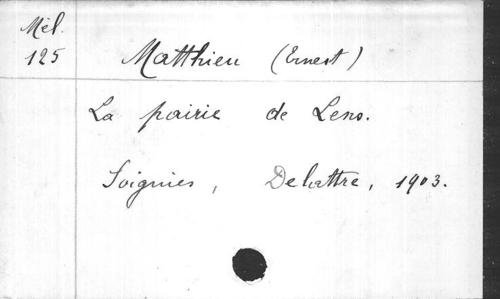 Mél.
125
Matthieu (Ernest)
La pairie de Lens.
Soignies, Delattre, 1903.